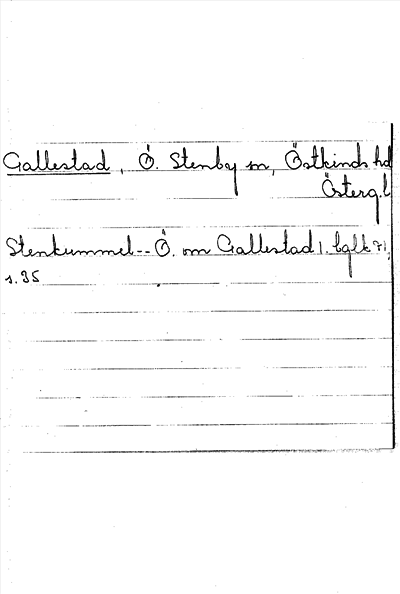 Gallestad, Ö. Stenby sn, Östkinds hd
Östergl
Stenkummel-- Ö. om Gallestad
s. 35